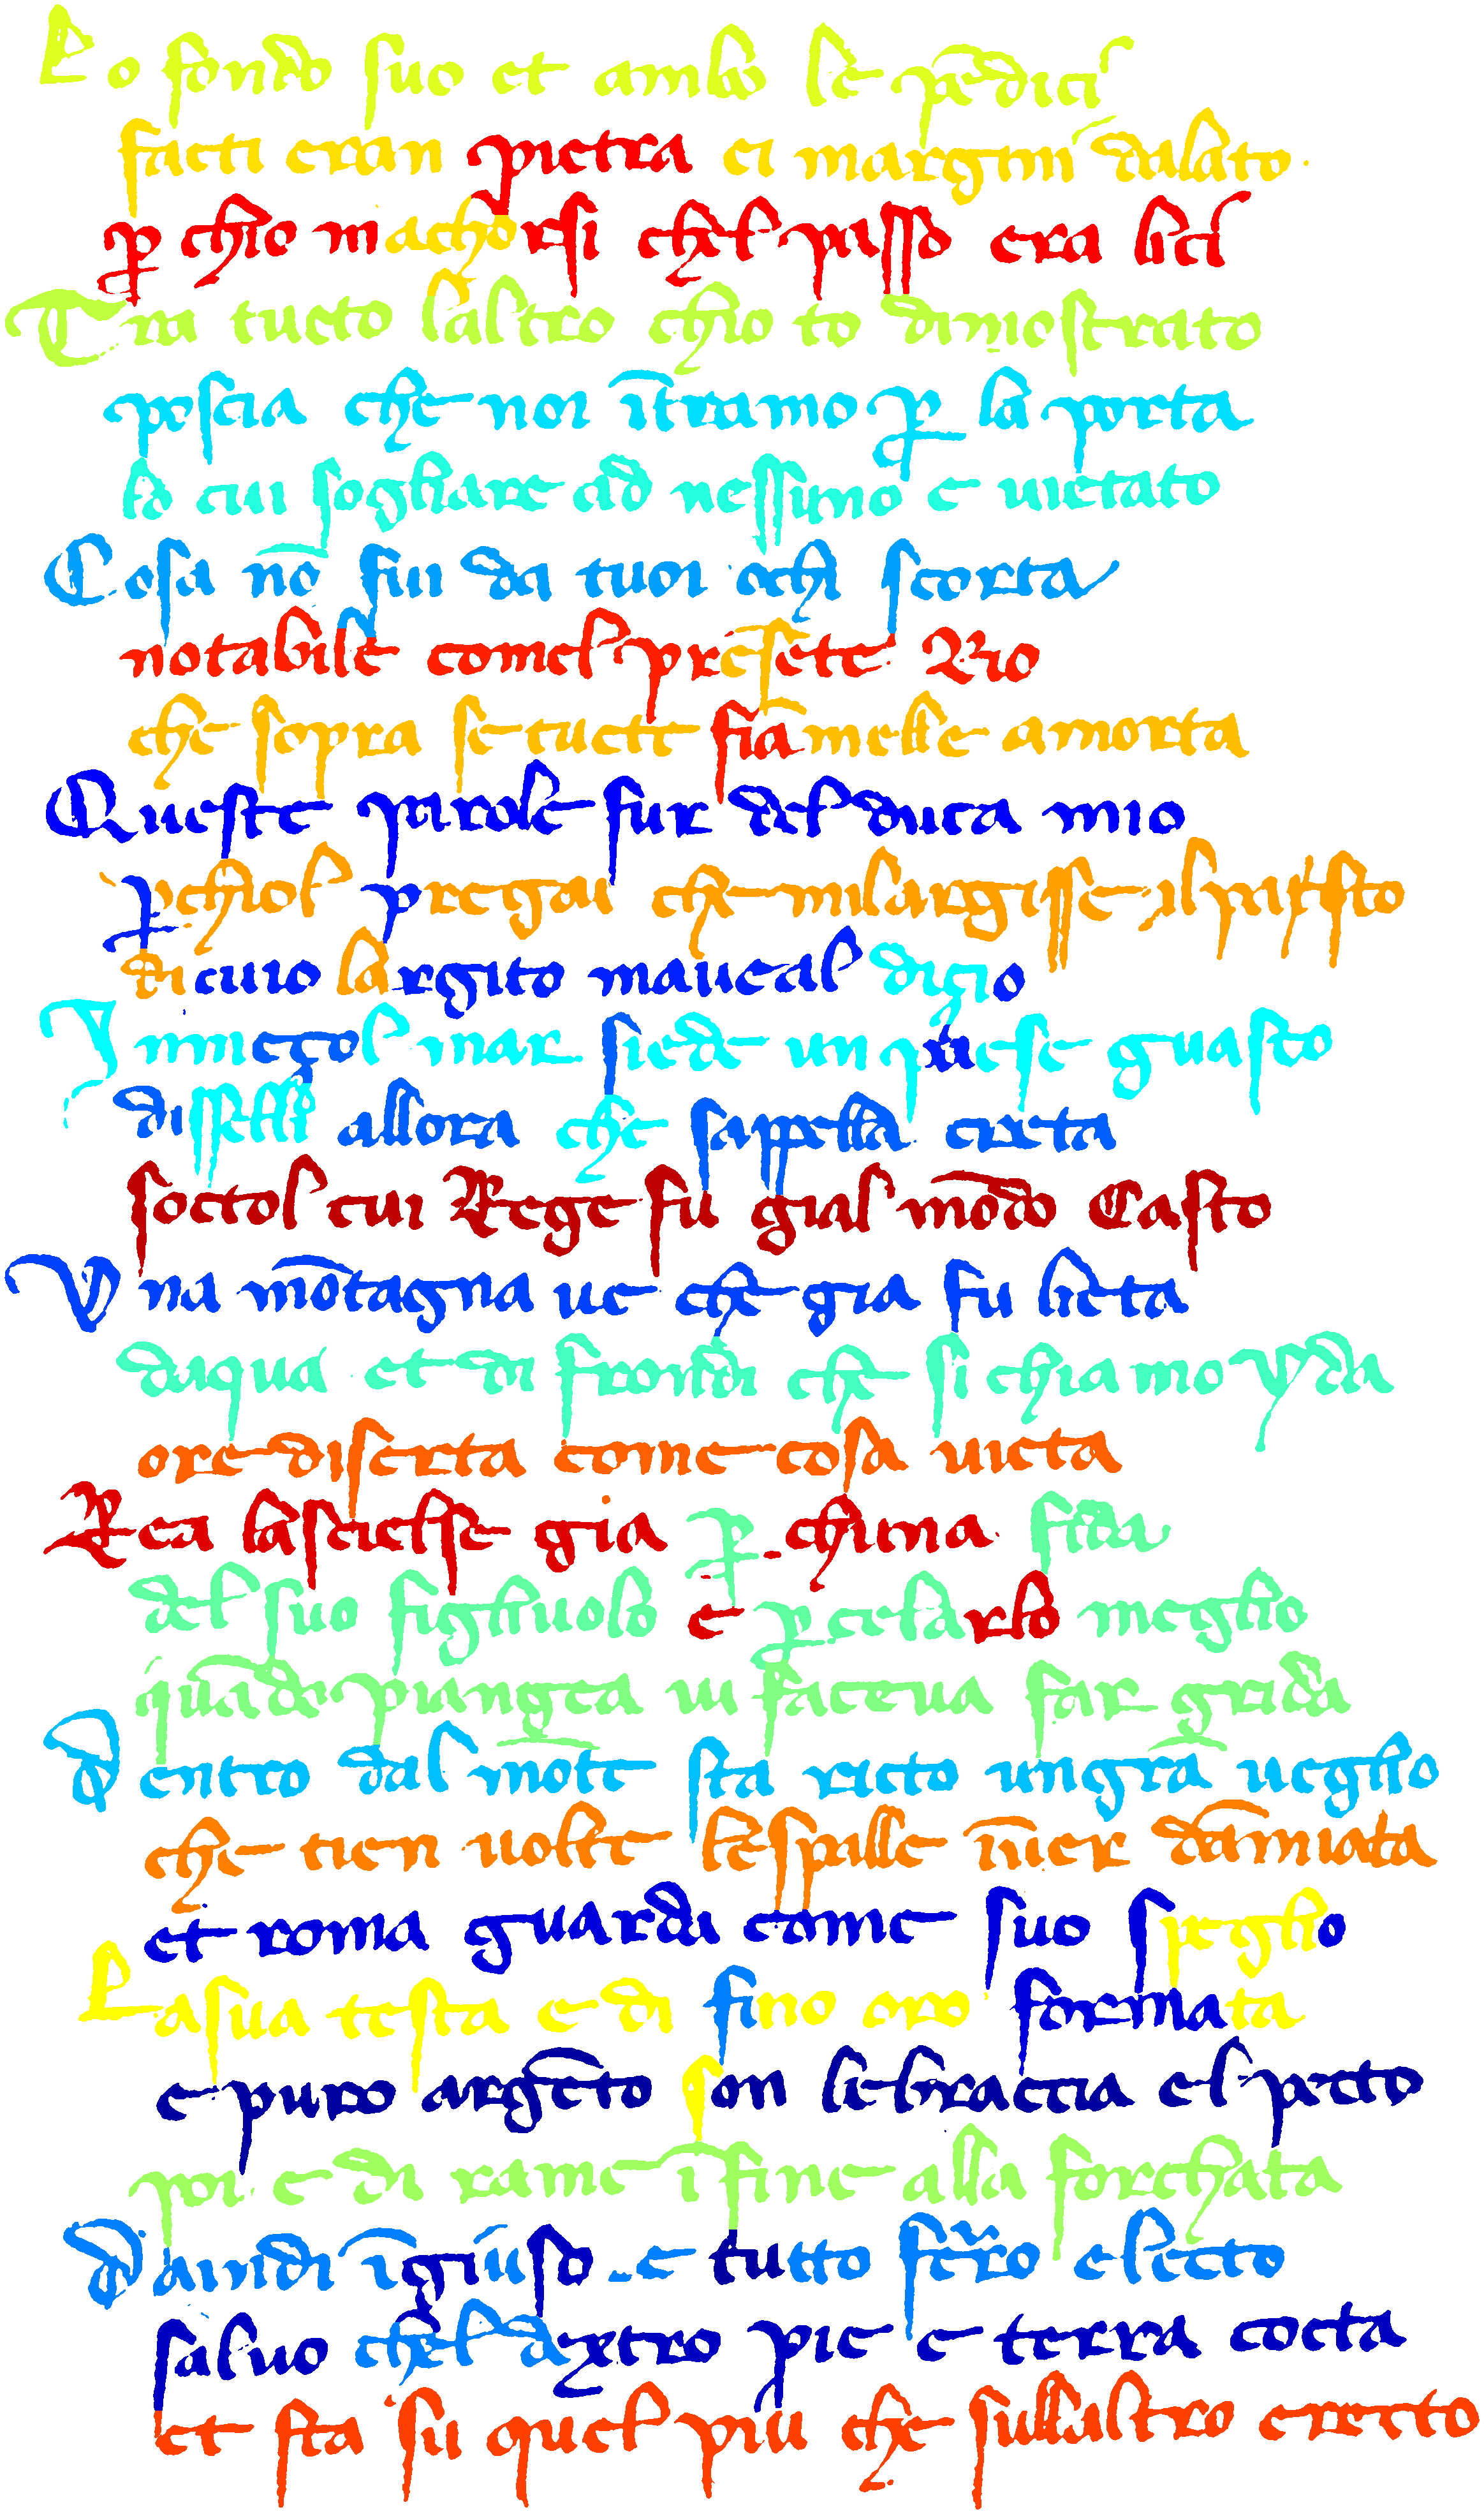 Lo fondo suo et ambo le pēdici
facti eran pietra et margini dallato
p chio maccorsi chel passo era lici
Tra tucto laltro chio to dimostrato
poscia che noi ītramo p la porta
lo cui sogliare ad nessuno e niegato
Cosa nō fu da tuoi occhi scorta
notabile comel presēte rio
che sopra se tucte fiamelle amorta
Queste parole fuor del duca mio
p chiol pregai che milargisse il pasto
di cuio largito maveal disio
In mezol mar siede un paese guasto
disselli allora che sappella creta
socto cui rege fu gial mōdo casto
Una mōtagna ve che gia fu lieta
dacqua et di frondi che si chiamo yda
ore diserta come cosa vieta
Rea la sciesse gia p chuna fida
del suo figliuolo e p celarlo meglio
quādo piangea vi facea far grida
Dentro dal mōte sta recto un grā veglio
che tien volte le spalle īver damiata
et roma guarda come suo speglio
La sua testa e di fino oro formata
e puro argēto son le braccia el pecto
poi e di rame īfino alla forchata
Da indi īgiuso e tucto ferro electo
salvo chel dextro pie e terra cocta
et sta su quel piu che sullaltro erecto